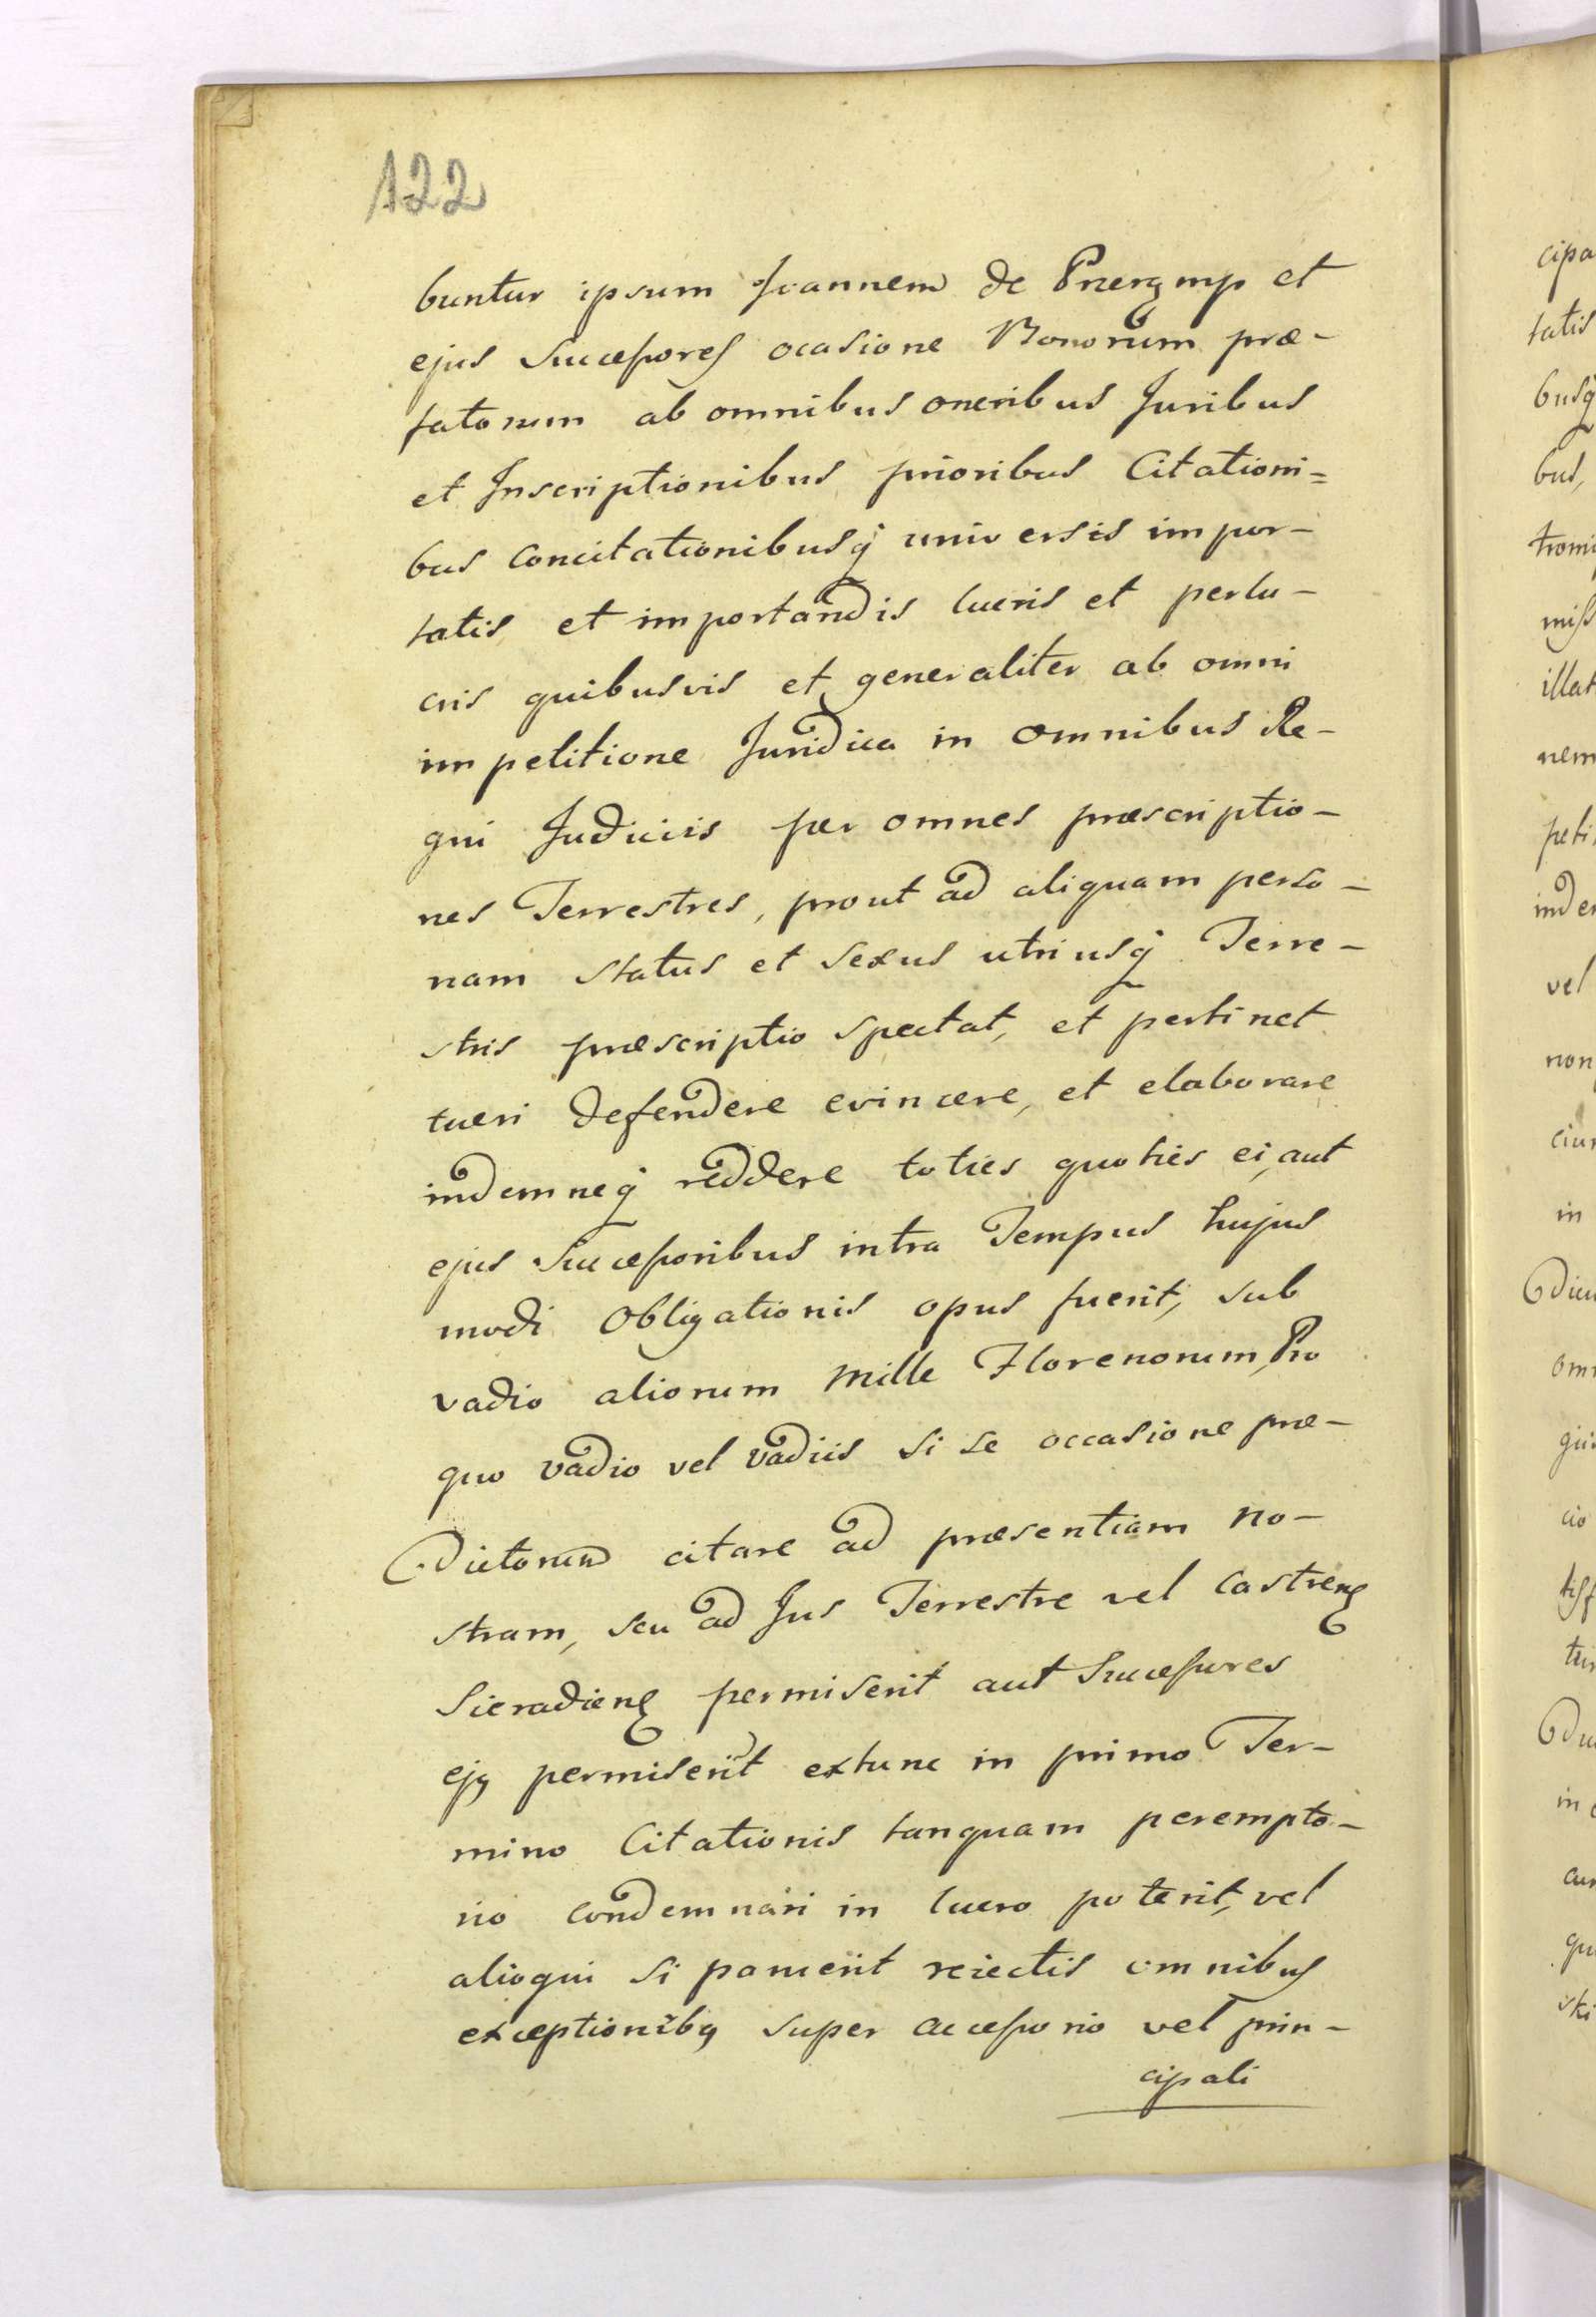 122
buntur ipsum Joannem de Przeręmp et
ejus Successores ocasione Bonorum præ-
fatorum ab omnibus oneribus Juribus
et Inscriptionibus prioribus Citationi=
bus concitationibusq́ universis impor-
tatis et importandis lucris et perlu-
cris quibusvis et generaliter ab omni
impetitione Juridica in omnibus Re-
gni Judiciis per omnes præscriptio-
nes Terrestres, prout ad aliquam perso-
nam status et sexus utriusq́ Terre-
stris præscriptio spectat, et pertinet
tueri defendere evincere, et elaborare
indemneq́ reddere toties quoties ei, aut
ejus Successoribus intra Tempus hujus
modi Obligationis opus fuerit, sub
vadio aliorum Mille Florenorum, Pro
quo vadio vel vadiis si se occasione præ-
dictorum citare ad præsentiam no-
stram, seu ad Jus Terrestre vel Castrenȩ
Sieradienȩ permiserit aut Successores
ejꝰ permiserīt extunc in primo Ter-
mino Citationis tanquam perempto-
rio condemnari in lucro poterit, vel
alioqui si paruerit reiectis omnibus
exceptionibꝰ super accessorio vel prin-
cipali
cipa
tatis
busq́
bus,
nem
vel
non
in
cio